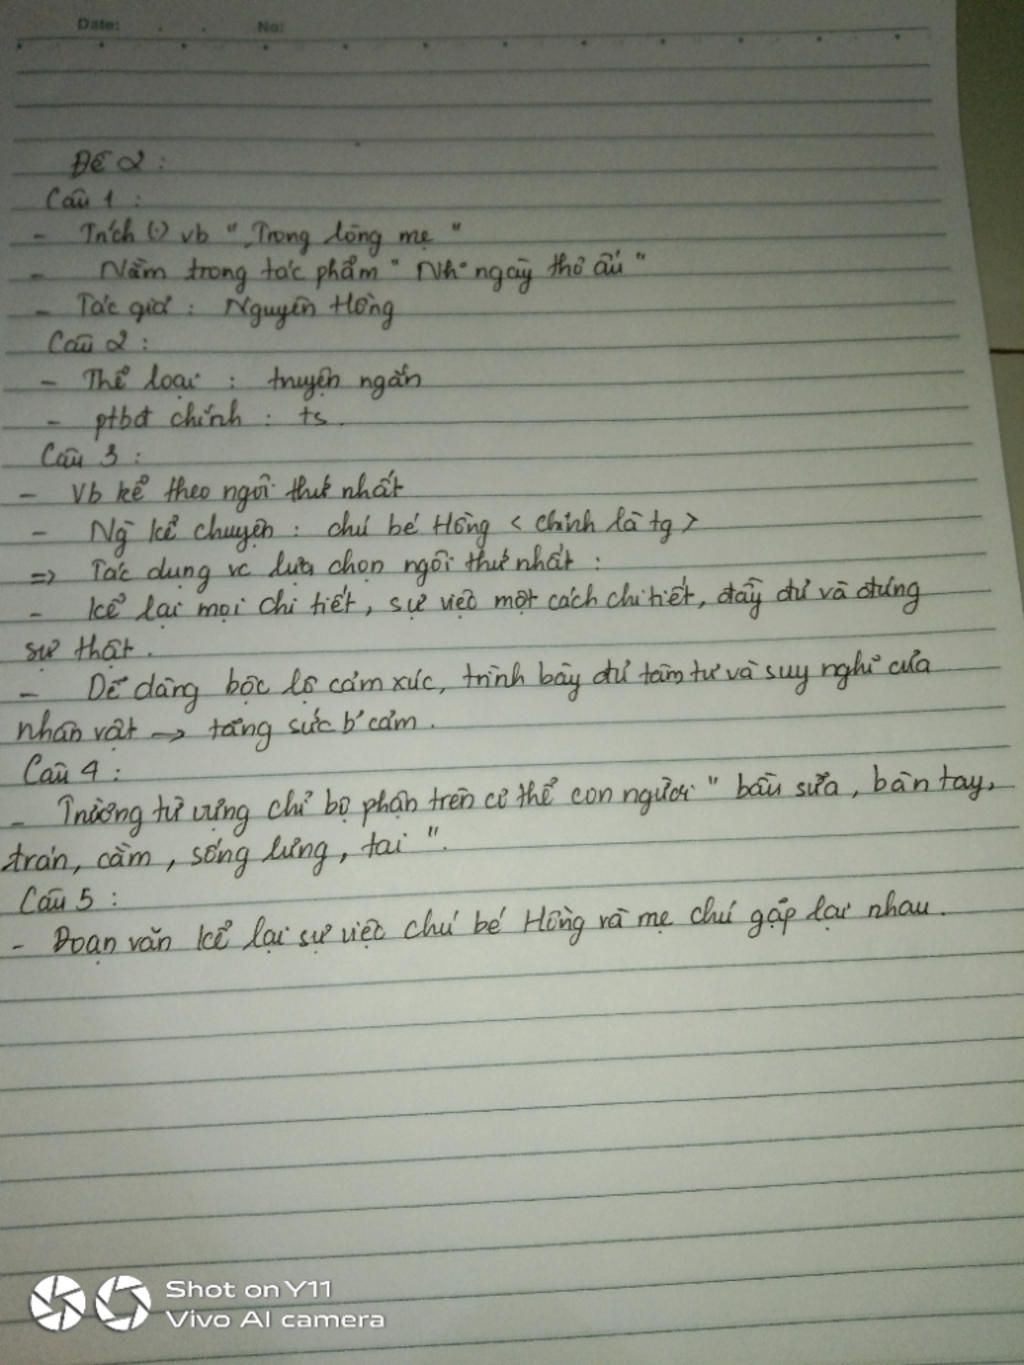 Date: No:
Đề 2 :
Câu 1 :
- Trích (.) vb " Trong lòng mẹ "
- Nằm trong tác phẩm " Nh~ ngày thơ ấu "
- Tác giả : Nguyên Hồng
Câu 2 :
- Thể loại : truyện ngắn
- ptbđ chính : ts.
Câu 3 :
- Vb kể theo ngôi thứ nhất
- Ng` kể chuyện : chú bé Hồng < chính là tg >
=> Tác dụng vc lựa chọn ngôi thứ nhất :
- kể lại mọi chi tiết, sự việc một cách chi tiết, đầy đủ và đúng
sự thật.
- Dễ dàng bộc lộ cảm xúc, trình bày đủ tâm tư và suy nghĩ của
nhân vật -> tăng sức b' cảm.
Câu 4 :
- Trường từ vựng chỉ bộ phận trên cơ thể con người " bầu sữa, bàn tay,
trán, cằm, sống lưng, tai ".
Câu 5 :
- Đoạn văn kể lại sự việc chú bé Hồng và mẹ chú gặp lại nhau.
Shot on Y11
Vivo AI camera